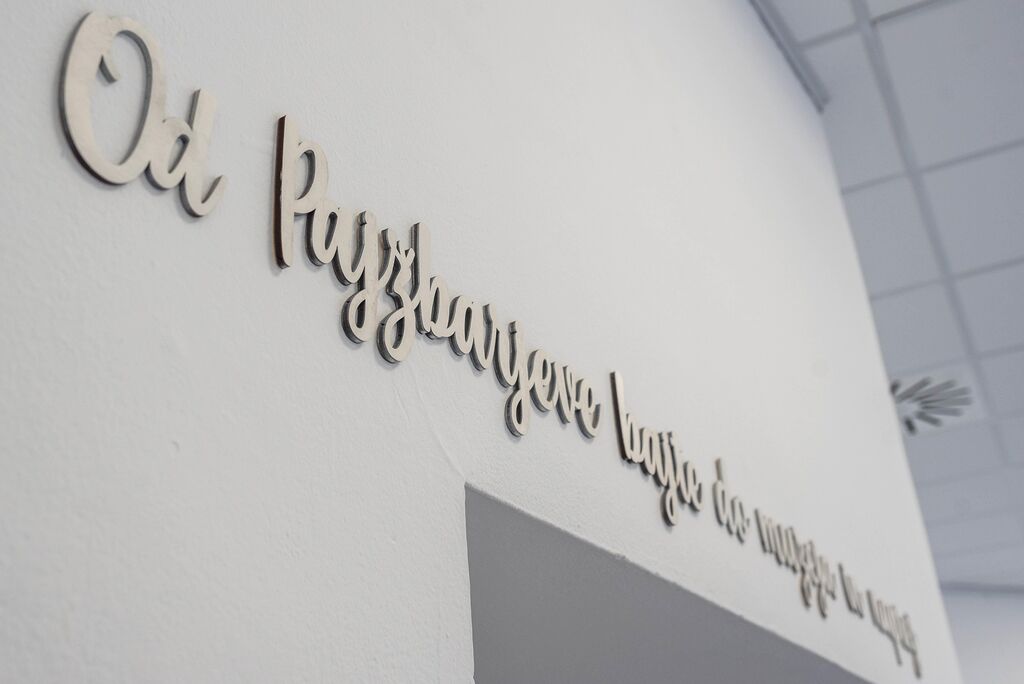 Od Pajžbarjeve bajte do muzeja in naprej